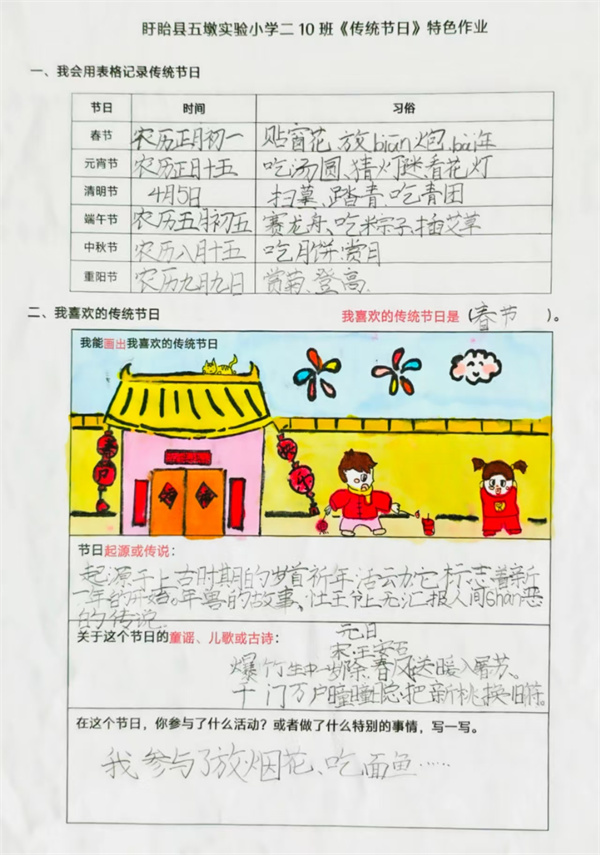 盱眙县五墩实验小学二10班《传统节日》特色作业
一、我会用表格记录传统节日
节日 时间 习俗
春节 农历正月初一 贴窗花、放biān炮、bài年
元宵节 农历正日十五 吃汤圆、猜灯谜、看花灯
清明节 4月5日 扫墓、踏青、吃青团
端午节 农历五月初五 赛龙舟、吃粽子、插艾草
中秋节 农历八月十五 吃月饼、赏月
重阳节 农历九月九日 赏菊、登高.
二、我喜欢的传统节日 我喜欢的传统节日是(春节)。
我能画出我喜欢的传统节日
春节
快乐
节日起源或传说:
起源于上古时期的岁首祈年活云力它标志着新
一年的开始。年兽的故事、灶王爷上天汇报人间shàn恶
的传说.
关于这个节日的童谣、儿歌或古诗:
元日
宋·王安石
爆竹生中一岁除,春风送暖入屠苏。
千门万户瞳瞳日,把新桃换旧符。
在这个节日,你参与了什么活动?或者做了什么特别的事情,写一写。
我参与了放烟花、吃面鱼……